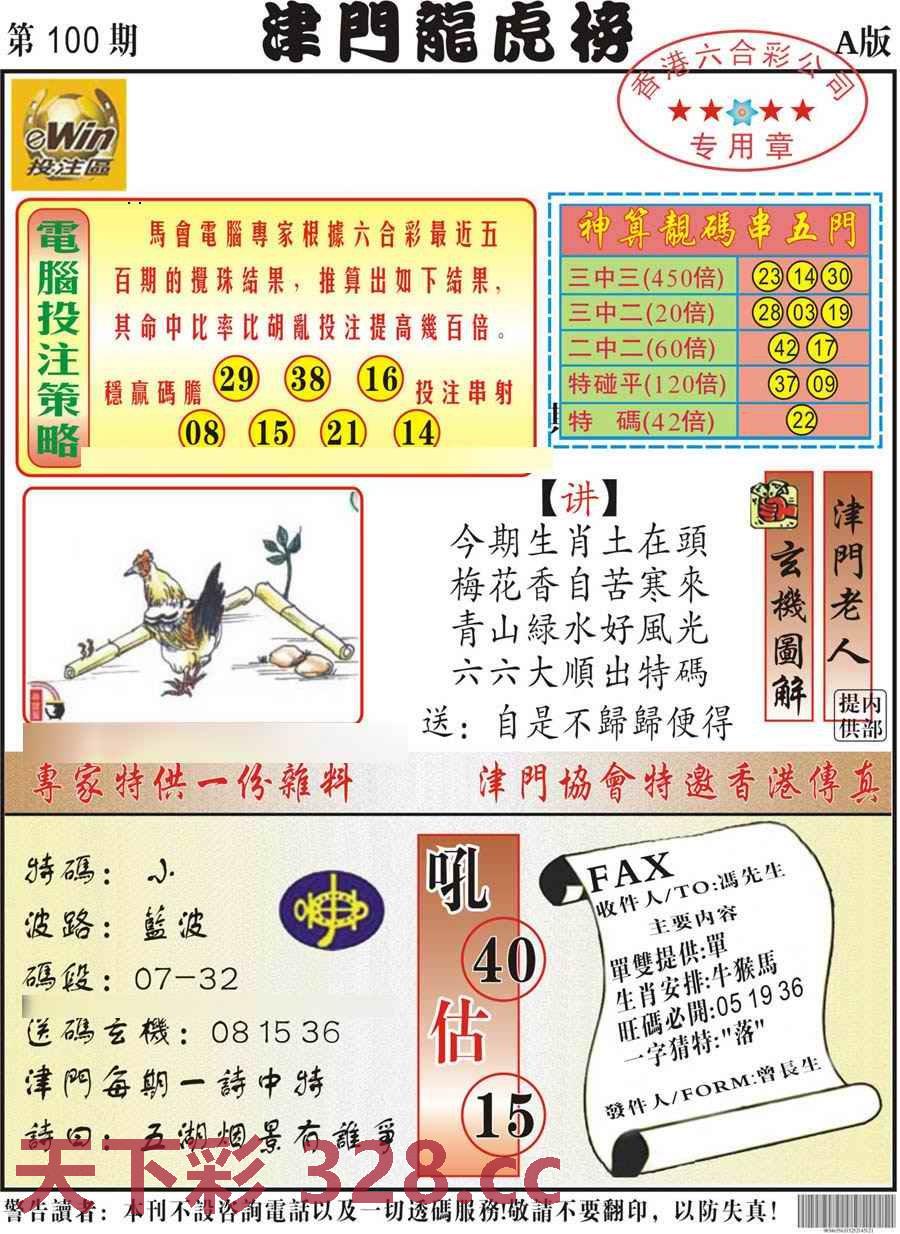 第 100 期
津門龍虎榜
A版
香港六合彩公司
专用章
eWin
投注區
電腦投注策略
馬會電腦專家根據六合彩最近五
百期的攪珠結果，推算出如下結果，
其命中比率比胡亂投注提高幾百倍。
穩贏碼膽 29 38 16 投注串射
08 15 21 14
神算靚碼串五門
三中三(450倍) 23 14 30
三中二(20倍) 28 03 19
二中二(60倍) 42 17
特碰平(120倍) 37 09
特 碼(42倍) 22
33
【讲】
今期生肖土在頭
梅花香自苦寒來
青山緑水好風光
六六大順出特碼
送：自是不歸歸便得
玄機圖解
津門老人
内部提供
專家特供一份雜料
津門協會特邀香港傳真
特碼：小
波路：藍波
碼段：07-32
送碼玄機：08 15 36
津門每期一詩中特
詩曰：五湖烟景有誰爭
吼
40
估
15
FAX
收件人/TO:馮先生
主要内容
單雙提供:單
生肖安排:牛猴馬
旺碼必開:05 19 36
一字猜特:"落"
發件人/FORM:曾長生
天下彩 328.cc
警告讀者：本刊不設咨詢電話以及一切透碼服務!敬請不要翻印，以防失真!